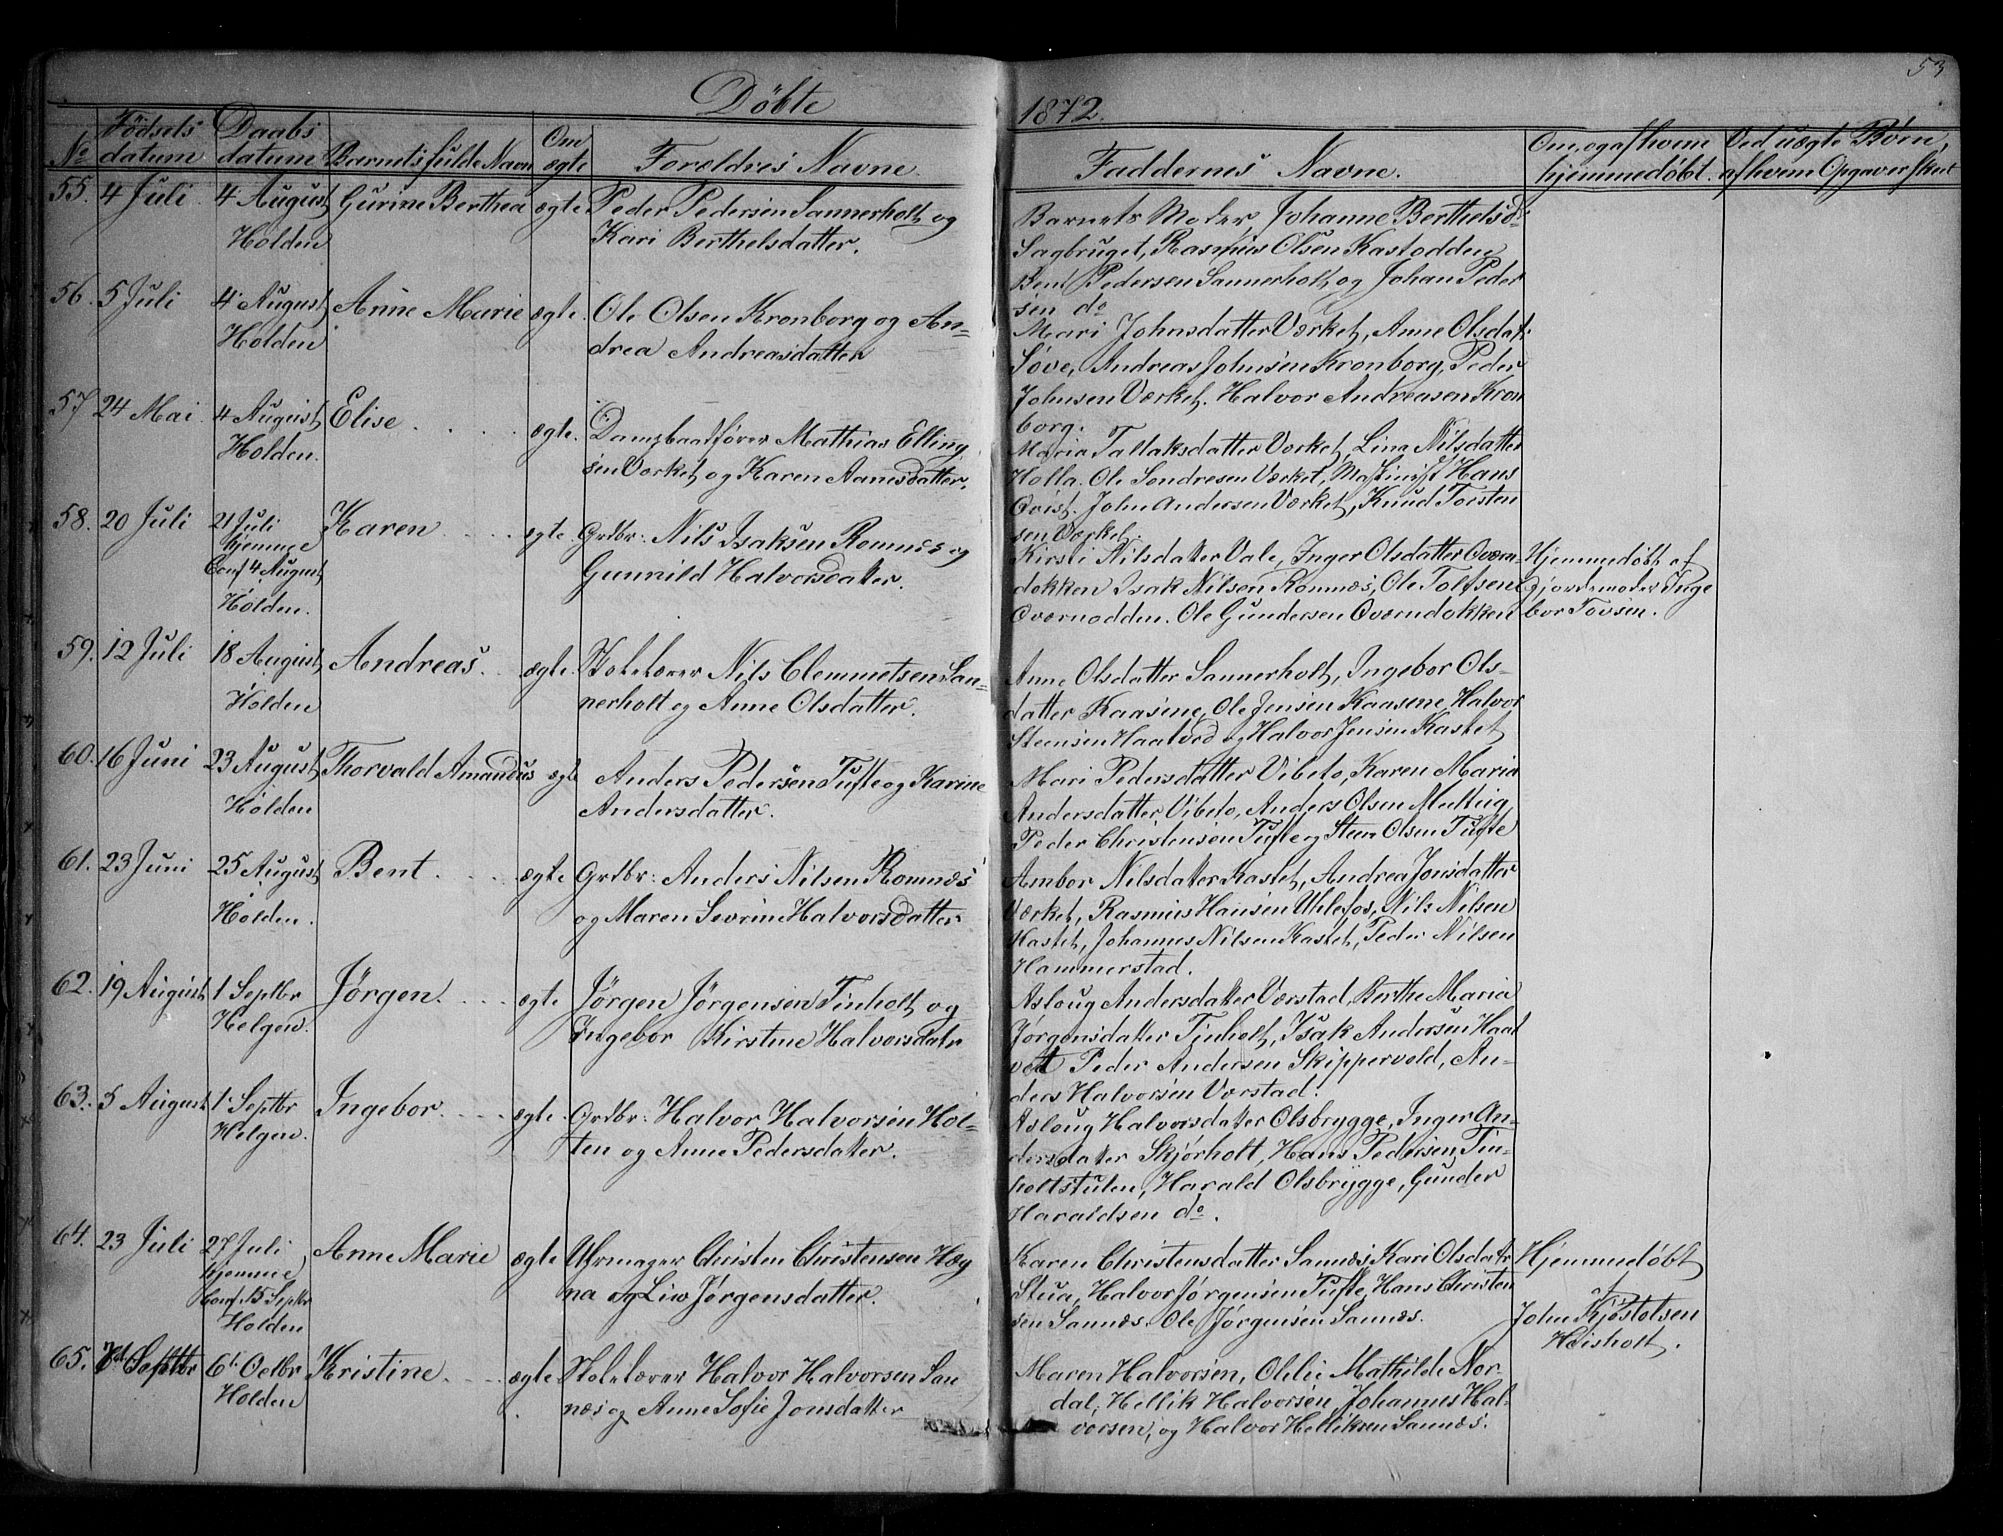 53
Döbte
1872.
No
Födsels
datum
Daabs
datum
Barnets fulde Navn
Om
ægte
Forældres Navne
Faddernes Navne.
Om, og af hvem
hjemmedöbt.
Ved uægte Børn,
af hvem Opgaver sket
55. 4 Juli
4 August
Holden
Gurine Berthea
ægte
Peder Pedersen Sannerholt og
Kari Berthelsdatter.
Barnets Moder, Johanne Berthelsd:
Sagbruget, Rasmus Olsen Kastodden
Bent Pedersen Sannerholt og Johan Peder
sen do
56. 5 Juli
4 August
Holden
Anne Marie
ægte.
Ole Olsen Kronborg og An-
drea Andreasdatter
Mari Johnsdatter Værket, Anne Olsdat:
Söve, Andreas Johnsen Kronborg, Peder
Johnsen Værket. Halvor Andreasen Kron
borg.
57. 24 Mai
4 August
Holden.
Elise
ægte.
Dampbaadfører Mathias Elling
sen Værket og Karen Aanesdatter.
Maria Tallaksdatter Værket, Lina Nilsdatter
Holla. Ole Sondresen Værket, Maskinist Hans
Qvist. John Andersen Værket, Knud Torsten
sen Værket.
58. 20 Juli
21 Juli
hjemme
Conf 4 August
Holden.
Karen
ægte.
Grdbr: Nils Isaksen Romnes og
Gunnild Halvorsdatter.
Kirsti Nilsdatter Vale, Inger Olsdatter Oværn-
dokken Isak Nilsen Romnæs, Ole Tolfsen
Oværnodden. Ole Gundersen Oværndokken
Hjemmedöbt af
Gjordemoder Inge
bor Tovsen.
59. 12 Juli
18 August,
Holden
Andreas.
ægte.
Skolelærer Nils Clemmetsen San-
nerholt og Anne Olsdatter.
Anne Olsdatter Sannerholt, Ingebor Ols-
datter Kaasine, Ole Jensen Kaasene, Halvor
Steensen Haatved og Halvor Jensen Kastet
60. 16 Juni
23 August
Holden
Thorvald Amandus
ægte
Anders Pedersen Tufte og Karine
Andersdatter.
Mari Pedersdatter Vibeto, Karen Maria
Andersdatter Vibeto, Anders Olsen Melteig,
Peder Christensen Tufte og Steen Olsen Tufte
61. 23 Juni
25 August
Holden.
Bent
ægte
Grdbr: Anders Nilsen Romnæs
og Maren Sevrine Halvorsdatter
Ambor Nilsdatter Kastet, Andrea Jonsdatter
Værket, Rasmus Hansen Uhlefos, Nils Nilsen
Kastet, Johannes Nilsen Kastet, Peder Nilsen
Hammerstad.
62. 19 August
1 Septbr
Helgen.
Jörgen.
ægte
Jörgen Jörgensen Tinholt og
Ingebor Kirstine Halvorsdatr
Asloug Andersdatter Værstad, Berthe Maria
Jörgensdatter Tinholt, Isak Andersen Haat
vet Peder Andersen Skippervold, An-
ders Halvorsen Værstad.
63. 5 August
1 Septbr
Helgen.
Ingebor
ægte
Grdbr: Halvor Halvorsen Hol-
ten og Anne Pedersdatter.
Asloug Halvorsdatter Olsbrygge, Inger An-
dersdatter Skjörholt, Hans Pedersen Tin-
holtstulen, Harald Olsbrygge, Gunder
Haraldsen do.
64. 23 Juli
27 Juli
hjemme
Conf. 15 Septbr
Holden
Anne Marie
ægte
Uhrmager Christen Christensen Hæg
na og Live Jörgensdatter.
Karen Christensdatter Sannæs, Kari Olsdatr
Stua, Halvor Jörgensen Tufte, Hans Christen
sen Sannæs. Ole Jörgensen Sannæs.
Hjemmedöbt
af
John Kjöstolsen
Heisholt.
65. Septbr
6t: Octbr
Holden
Kristine
ægte
Skolelærer Halvor Halvorsen San
næs og Anne Sofie Jonsdatter
Maren Halvorsen, Olelie Mathilde Nor-
dal, Hellik Halvorsen Johannes Hal-
vorsen, og Halvor Helliksen Sannæs.